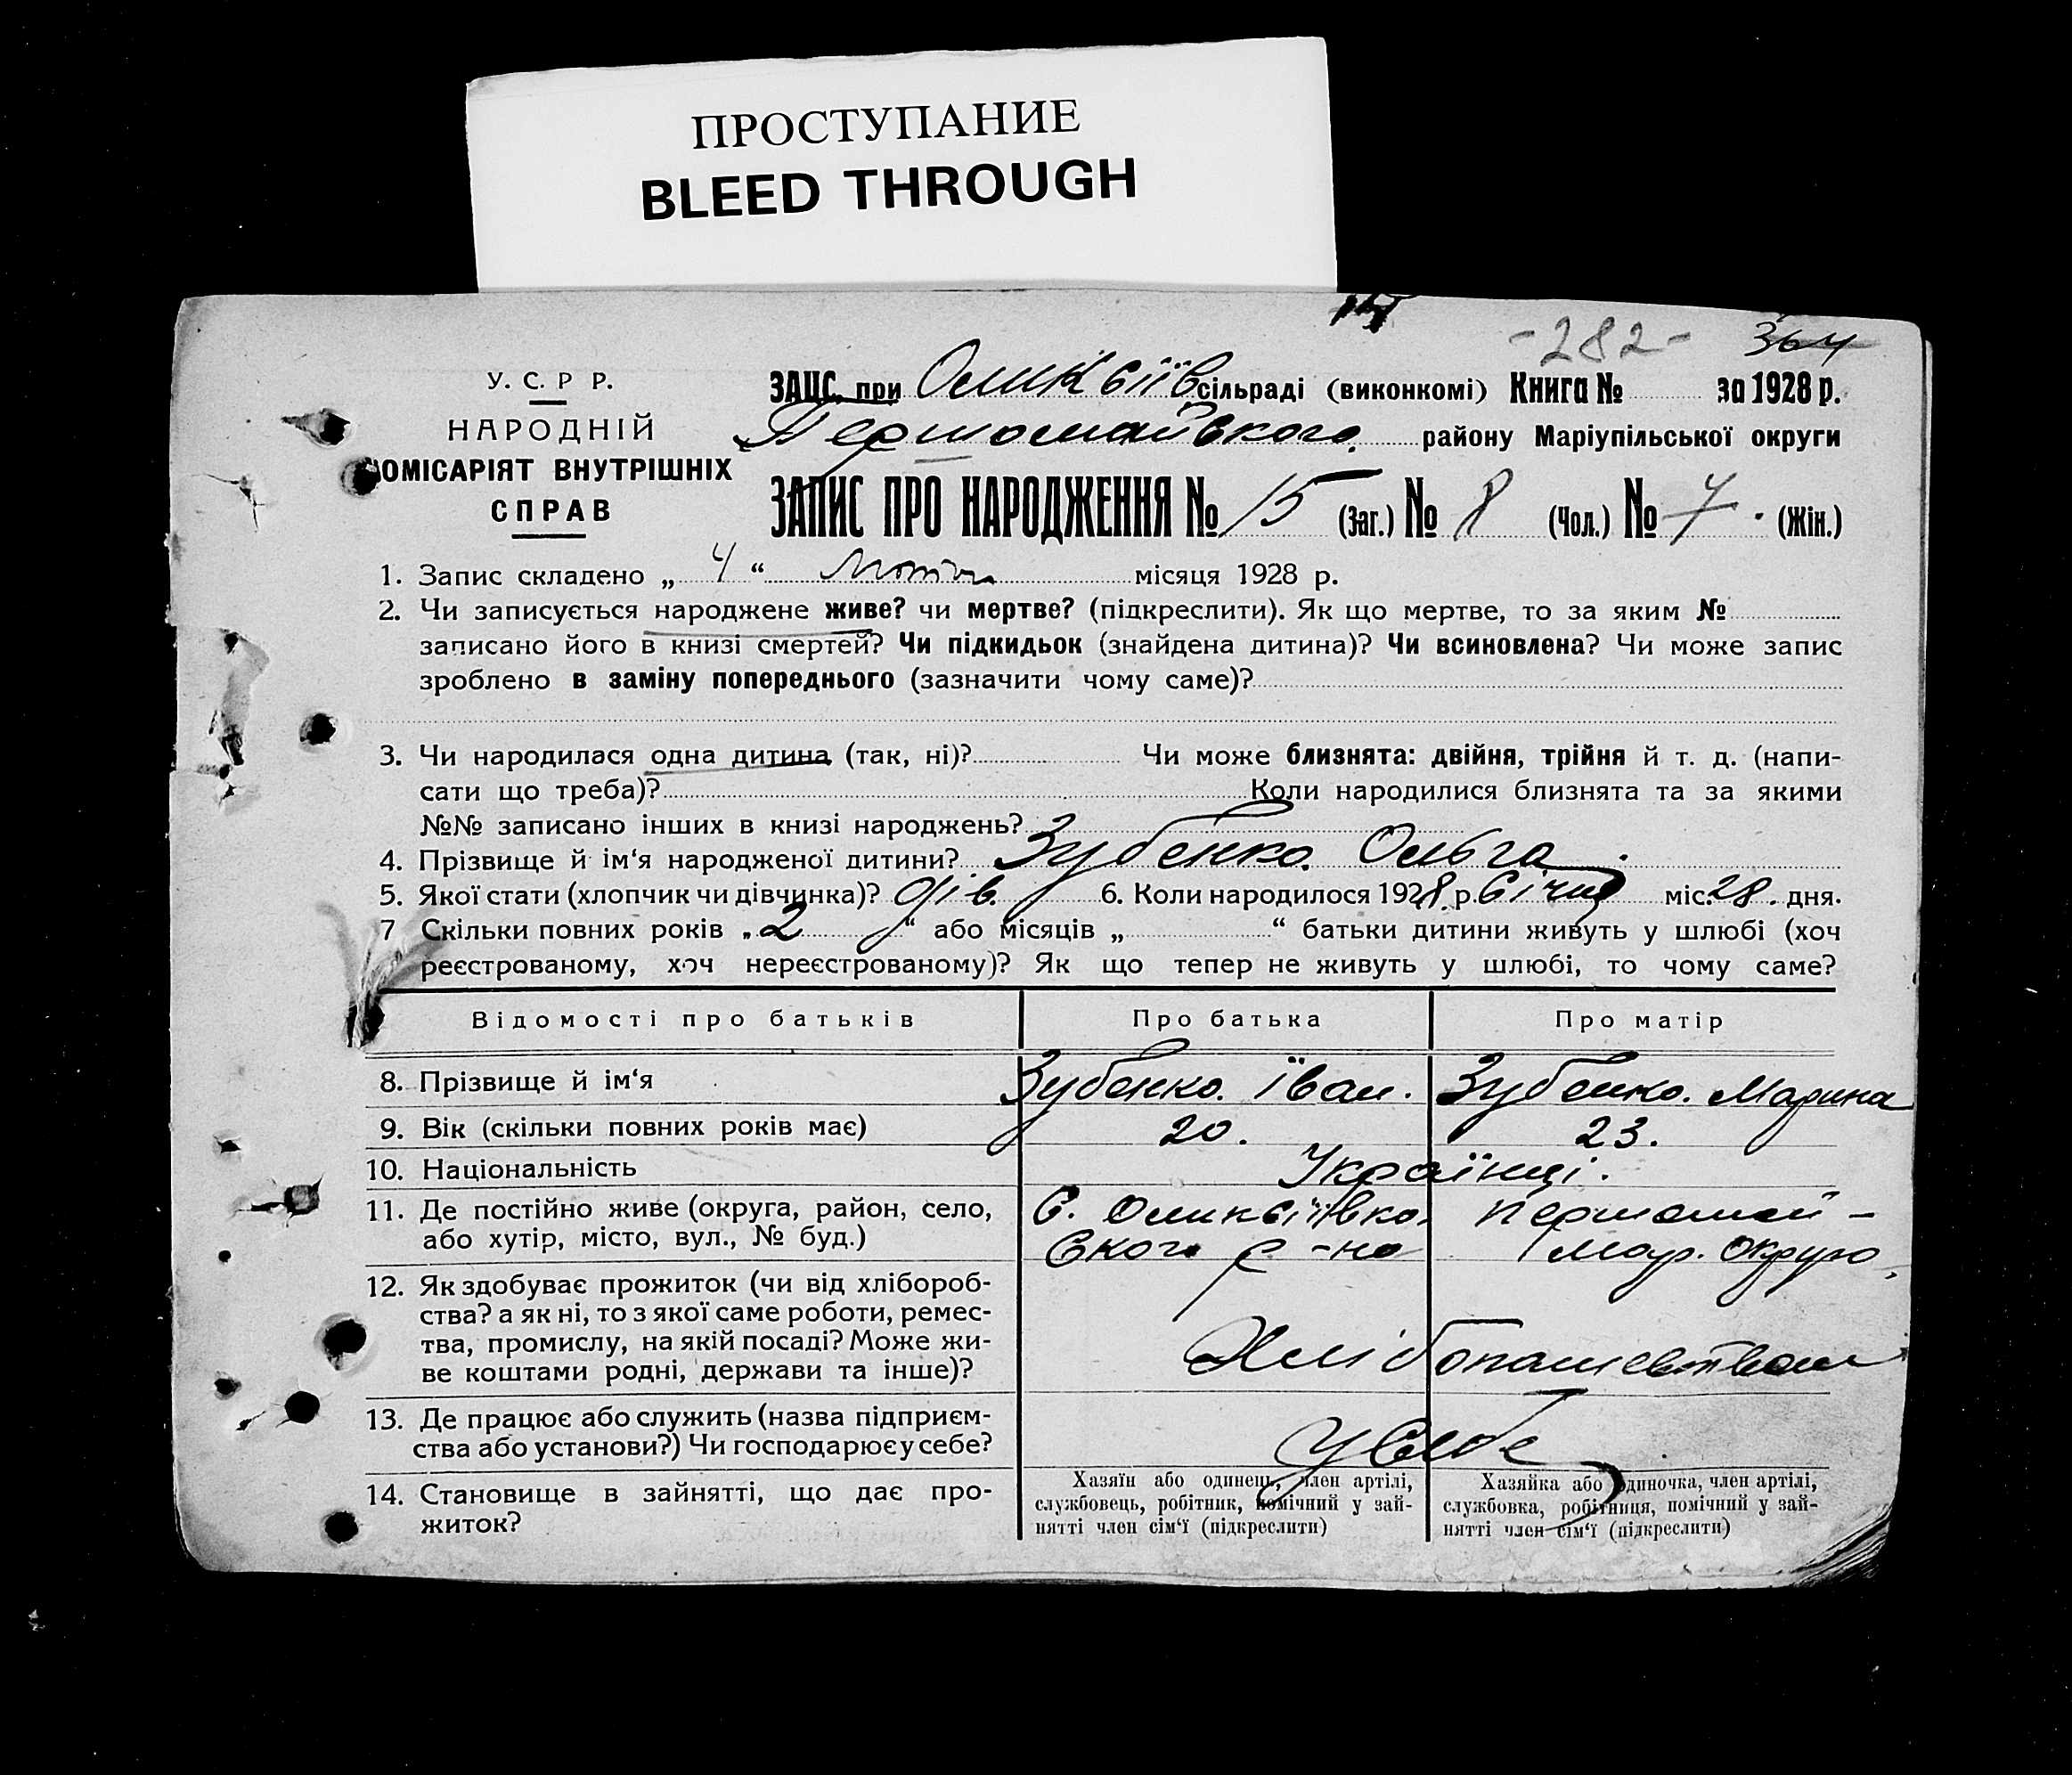 ПРОСТУПАНИЕ
BLEED THROUGH
-282- 364
У. С. Р Р.
НАРОДНІЙ
КОМІСАРІЯТ ВНУТРІШНІХ
СПРАВ
ЗАЦС. при Оликсіїв сільраді (виконкомі) Книга № за 1928 р.
Першомайського району Маріупільської округи
ЗАПИС ПРО НАРОДЖЕННЯ № 15 (Заг.) № 8 (Чол.) № 7. (Жін.)
1. Запис складено „ 4 “ місяця 1928 р.
2. Чи записується народжене живе? чи мертве? (підкреслити). Як що мертве, то за яким №
записано його в книзі смертей? Чи підкидьок (знайдена дитина)? Чи всиновлена? Чи може запис
зроблено в заміну попереднього (зазначити чому саме)?
3. Чи народилася одна дитина (так, ні)? Чи може близнята: двійня, трійня й т. д. (напи-
сати що треба)? Коли народилися близнята та за якими
№№ записано інших в книзі народжень?
4. Прізвище й ім‘я народженої дитини? Зубенко Ольга
5. Якої стати (хлопчик чи дівчинка)? дів. 6. Коли народилося 1928 р. січня міс. 28. дня.
7 Скільки повних років „ 2 “ або місяців „ “ батьки дитини живуть у шлюбі (хоч
реєстрованому, хоч нереєстрованому)? Як що тепер не живуть у шлюбі, то чому саме?
Відомості про батьків Про батька Про матір
8. Прізвище й ім‘я Зубенко. Іван. Зубенко. Марина
9. Вік (скільки повних років має) 20. 23.
10. Національність Українці.
11. Де постійно живе (округа, район, село, С. Оликсіївка. Першомай-
або хутір, місто, вул., № буд.) ского р-на Мар. округ
12. Як здобуває прожиток (чи від хлібороб-
ства? а як ні, то з якої саме роботи, ремес-
тва, промислу, на якій посаді? Може жи-
ве коштами родні, держави та інше)? Хлібопашевством
13. Де працює або служить (назва підприєм-
ства або установи?) Чи господарює у себе? У себе
14. Становище в зайнятті, що дає про-
житок?
Хазяїн або одинець, член артілі,
службовець, робітник, помічний у зай-
нятті член сім‘ї (підкреслити)
Хазяйка або одиночка, член артілі,
службовка, робітниця, помічний у зай-
нятті член сім‘ї (підкреслити)